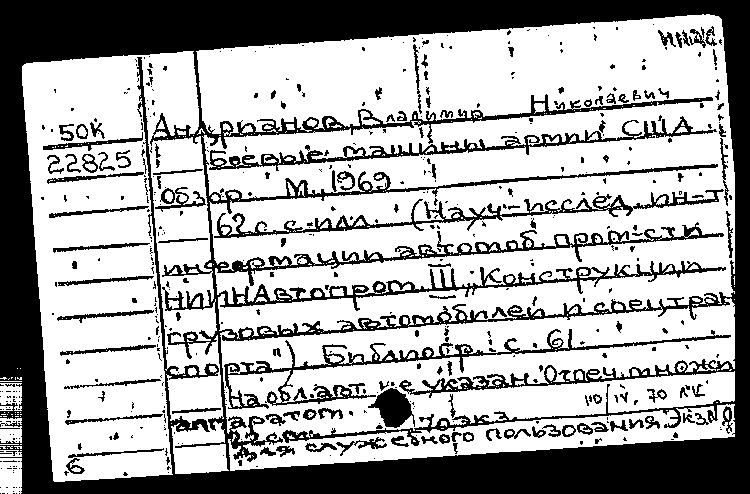 50К
22825
Андрианов, Владимир Николаевич
Боевые машины армии США.
Обзор. М., 1969.
62 с. с илл. (Науч-исслед. ин-т
информации автомоб. пром-сти
НИИНАвтопром. III „Конструкции
грузовых автомобилей и спецтран
спорта"). Библиогр.: с. 61.
На обл. авт. не указан. Отпеч. множит
аппаратом. 70 экз. IV, 70
22 см.
Для служебного пользования. Экз. №
6